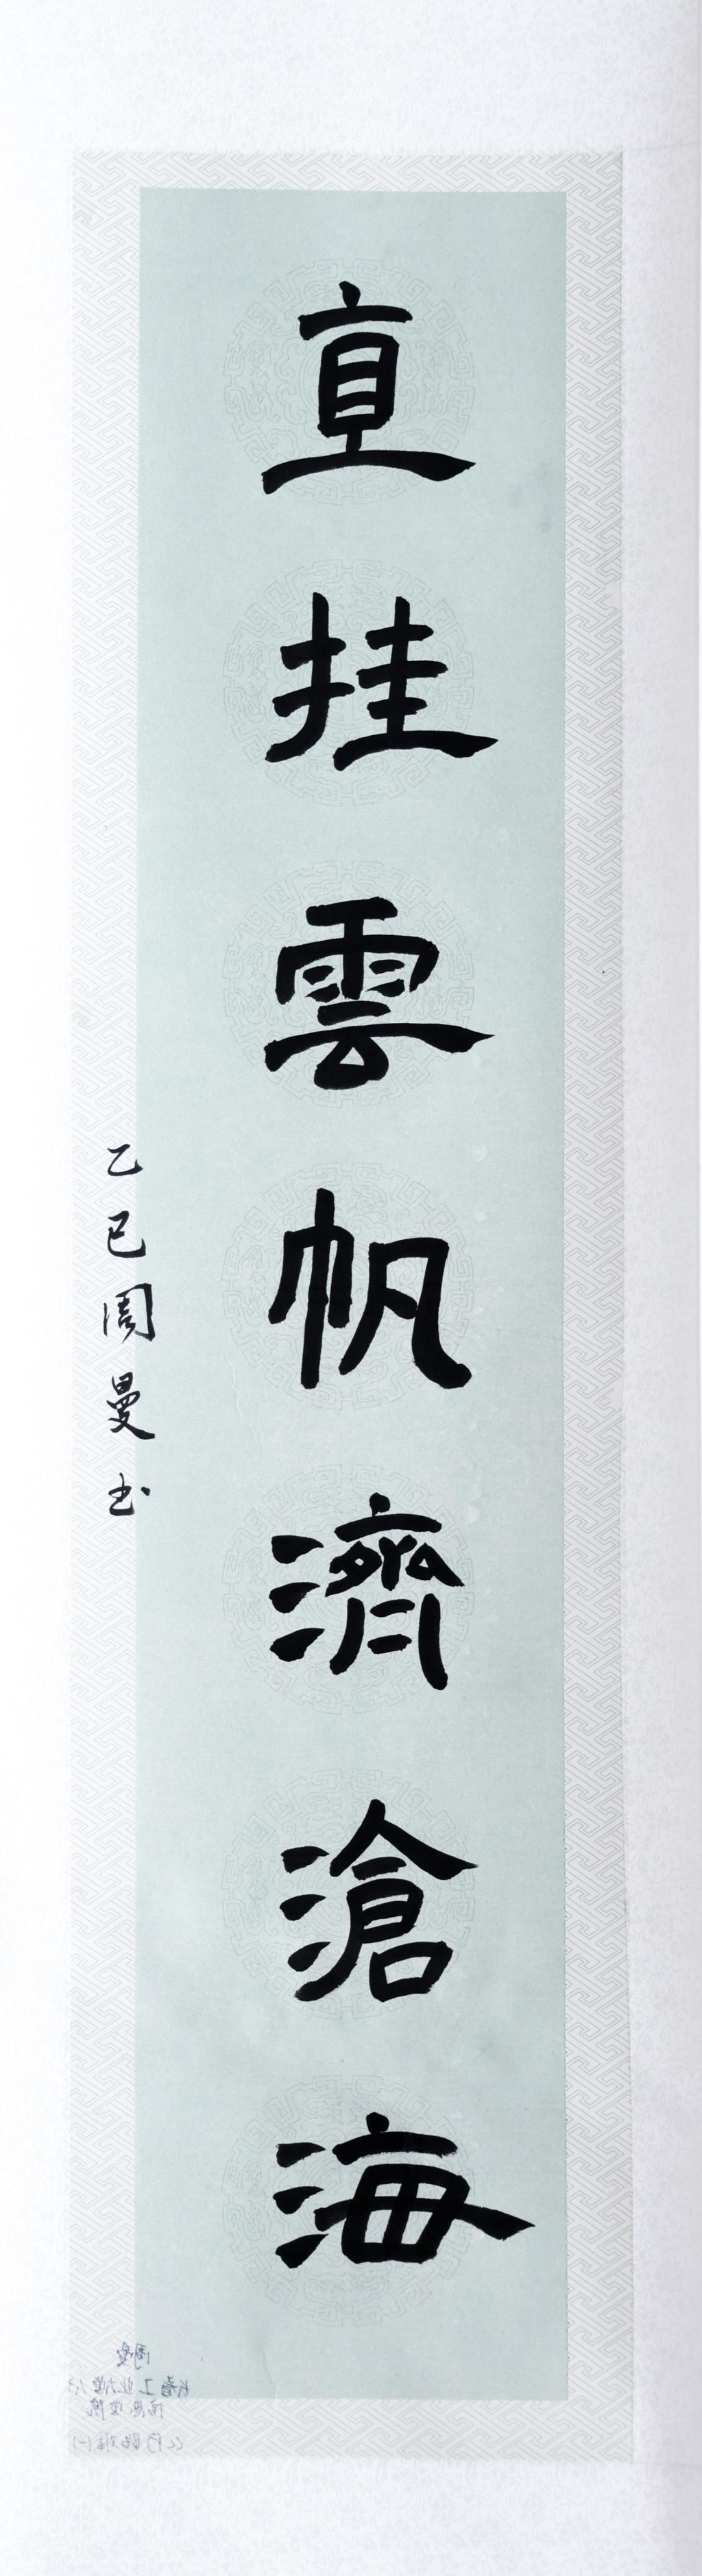 直挂雲帆濟滄海
乙巳周曼书
周曼